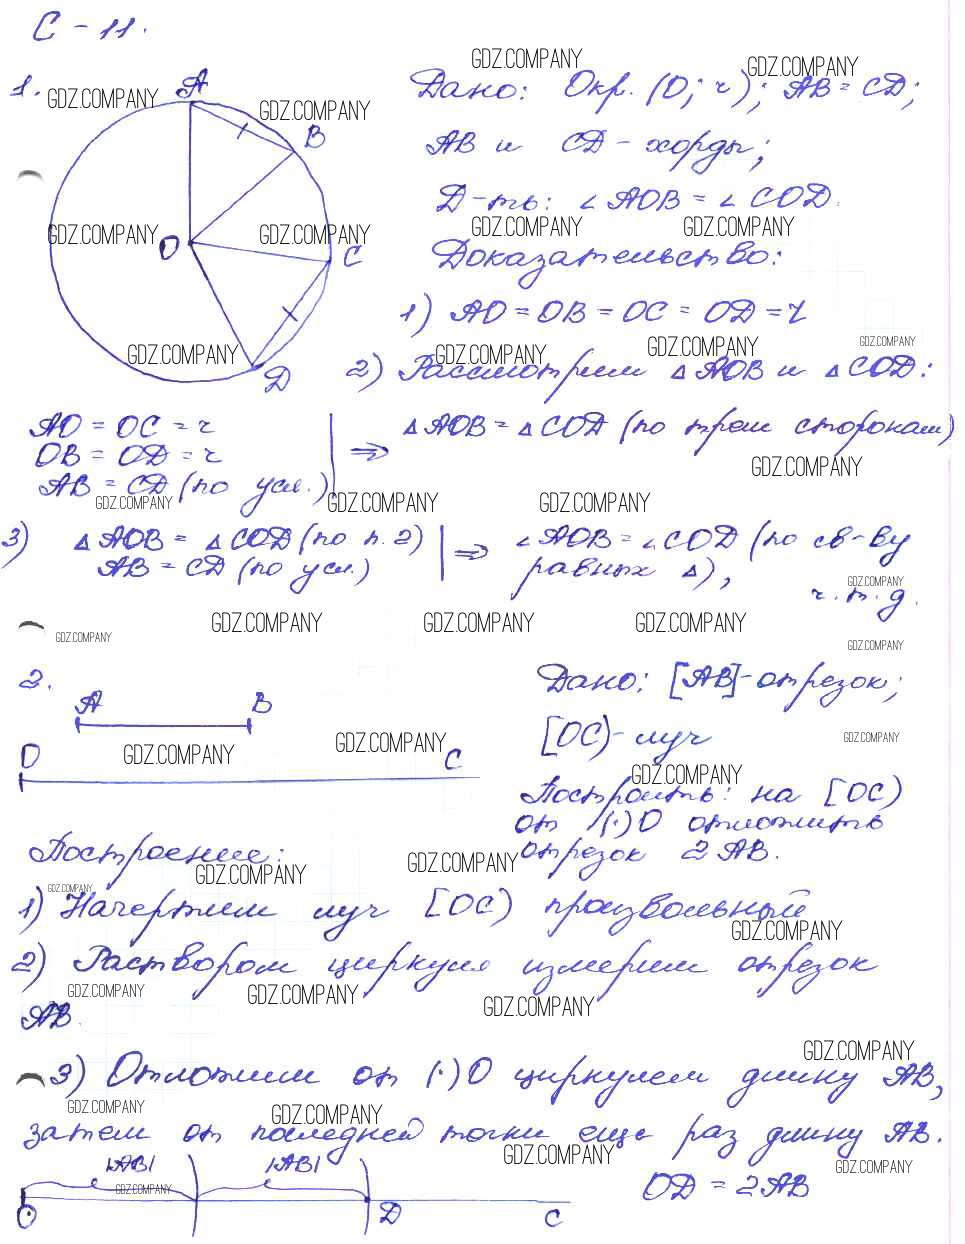 С - 11.
1.
A
B
O
C
D
Дано: Окр. (O; r); AB = CD;
AB и CD - хорды;
Д-ть: ∠ AOB = ∠ COD.
Доказательство:
1) AO = OB = OC = OD = r
2) Рассмотрим △ AOB и △ COD:
AO = OC = r
OB = OD = r
AB = CD (по усл.)
⇒ △ AOB = △ COD (по трем сторонам)
3) △ AOB = △ COD (по п. 2)
AB = CD (по усл.)
⇒ ∠ AOB = ∠ COD (по св-ву
равных △),
ч.т.д.
2.
A B
O C
Дано: [AB] - отрезок;
[OC) - луч
Построить: на [OC)
от (·) O отложить
отрезок 2 AB.
Построение:
1) Начертим луч [OC) произвольный
2) Раствором циркуля измерим отрезок
AB.
3) Отложим от (·) O циркулем длину AB,
затем от последней точки еще раз длину AB.
|AB| |AB|
O D C
OD = 2AB
GDZ.COMPANY